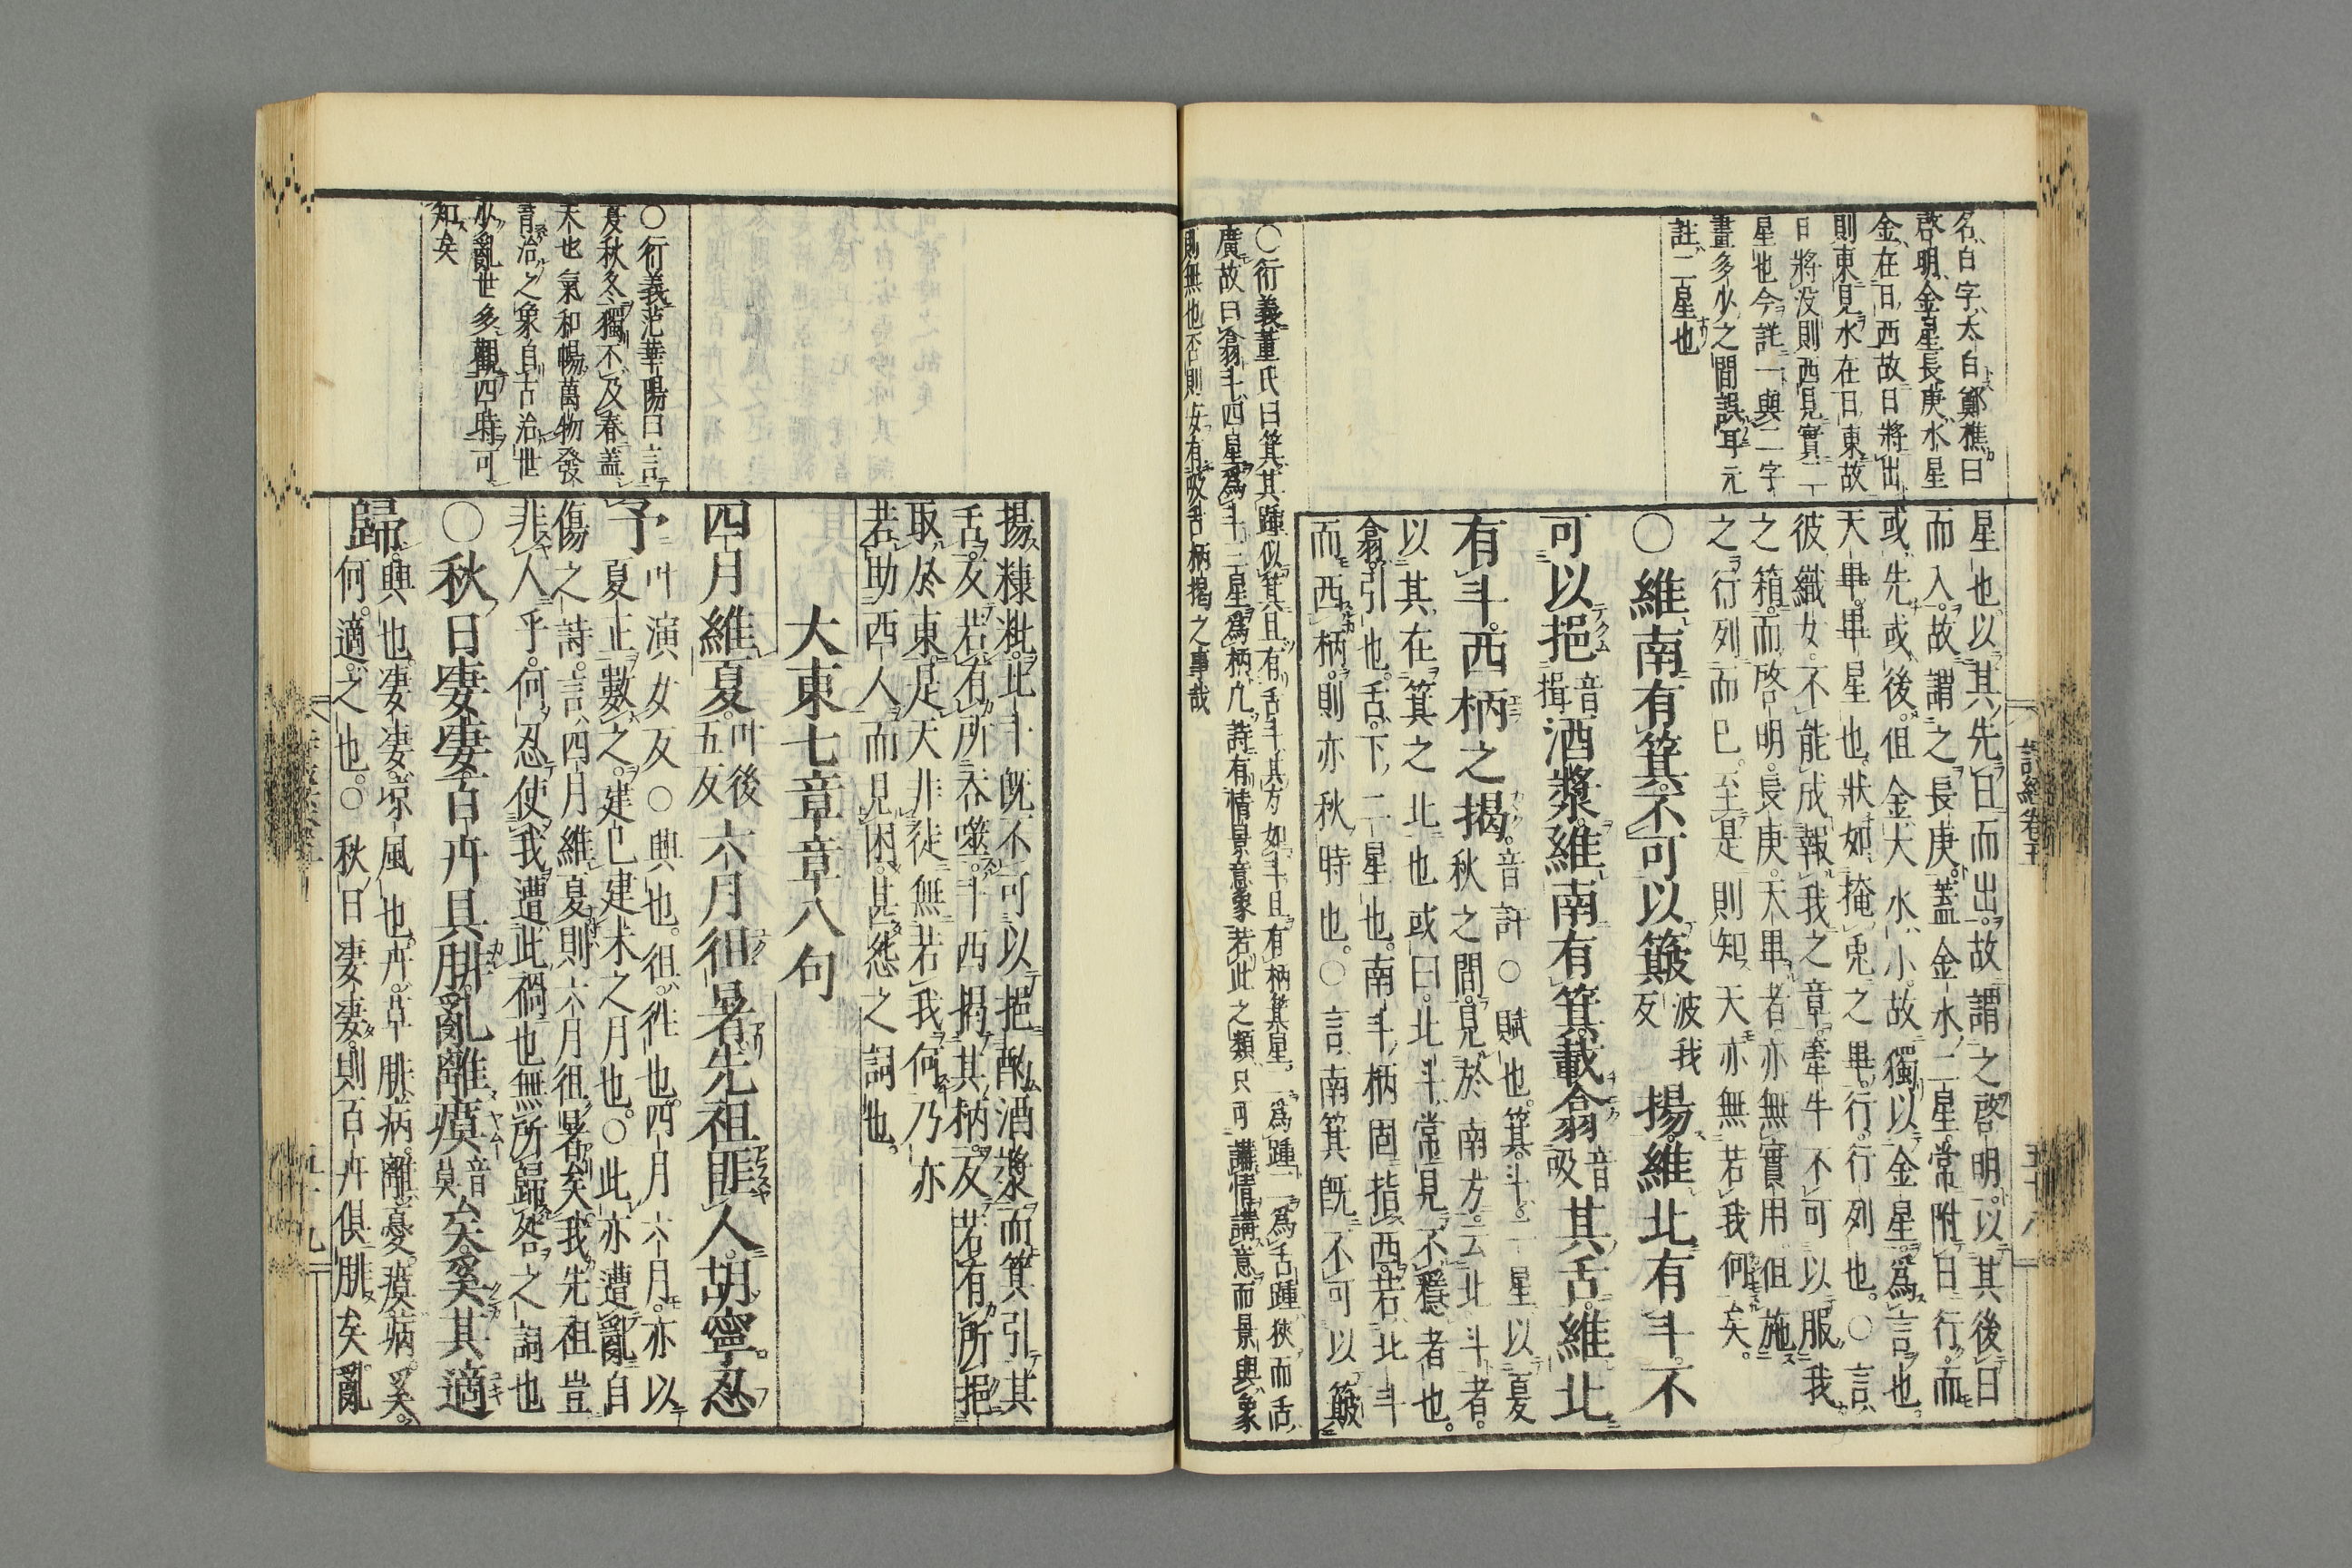 名白字太白鄭樵曰
啓明金星長庚水星
金在日西故日將出
則東見水在日東故
日將没則西見實二
星也今註一與二字
畫多少之間誤耳元
註二星也
星也以其先日而出故謂之啓明以其後日
而入故謂之長庚蓋金水二星常附日行而
或先或後但金大水小故獨以金星爲言也
天畢畢星也狀如掩兎之畢行行列也○言
彼織女不能成報我之章牽牛不可以服我
之箱而啓明長庚天畢者亦無實用但施
之行列而已至是則知天亦無若我何矣
○維南有箕不可以簸波我反揚維北有斗不
可以挹音揖酒漿維南有箕載翕音吸其舌維北
有斗西柄之揭音訐○賦也箕斗二星以夏
秋之間見於南方云北斗者
以其在箕之北也或曰北斗常見不隱者也
翕引也舌下二星也南斗柄固指西若北斗
而西柄則亦秋時也○言南箕旣不可以簸
○衍義董氏曰箕其踵似箕且有舌斗其方如斗且有柄箕星二爲踵二爲舌踵狹而舌
廣故曰翕斗四星爲斗三星爲柄凡詩有情景意象若此之類只可講情講意而景與象
則無也否則安有吸舌柄揭之事哉
詩經卷五
五十八
揚糠粃北斗旣不可以挹酌酒漿而箕引其
舌反若有所吞噬斗西揭其柄反若有所挹
取於東是天非徒無若我何乃亦
若助西人而見困甚怨之詞也
大東七章章八句
四月維夏叶後五反六月徂暑先祖匪人胡寧忍
予叶演女反○興也徂往也四月六月亦以
夏正數之建巳建未之月也○此亦遭亂自
傷之詩言四月維夏則六月徂暑矣我先祖豈
非人乎何忍使我遭此禍也無所歸咎之詞也
○秋日凄凄百卉具腓亂離瘼音莫矣奚其適
歸興也凄凄凉風也卉草腓病離憂瘼病奚
何適之也○秋日凄凄則百卉俱腓矣亂
○衍義范華陽曰言
夏秋冬獨不及春蓋
天也氣和暢萬物發
育治之象自古治世
少亂世多觀四時可
知矣